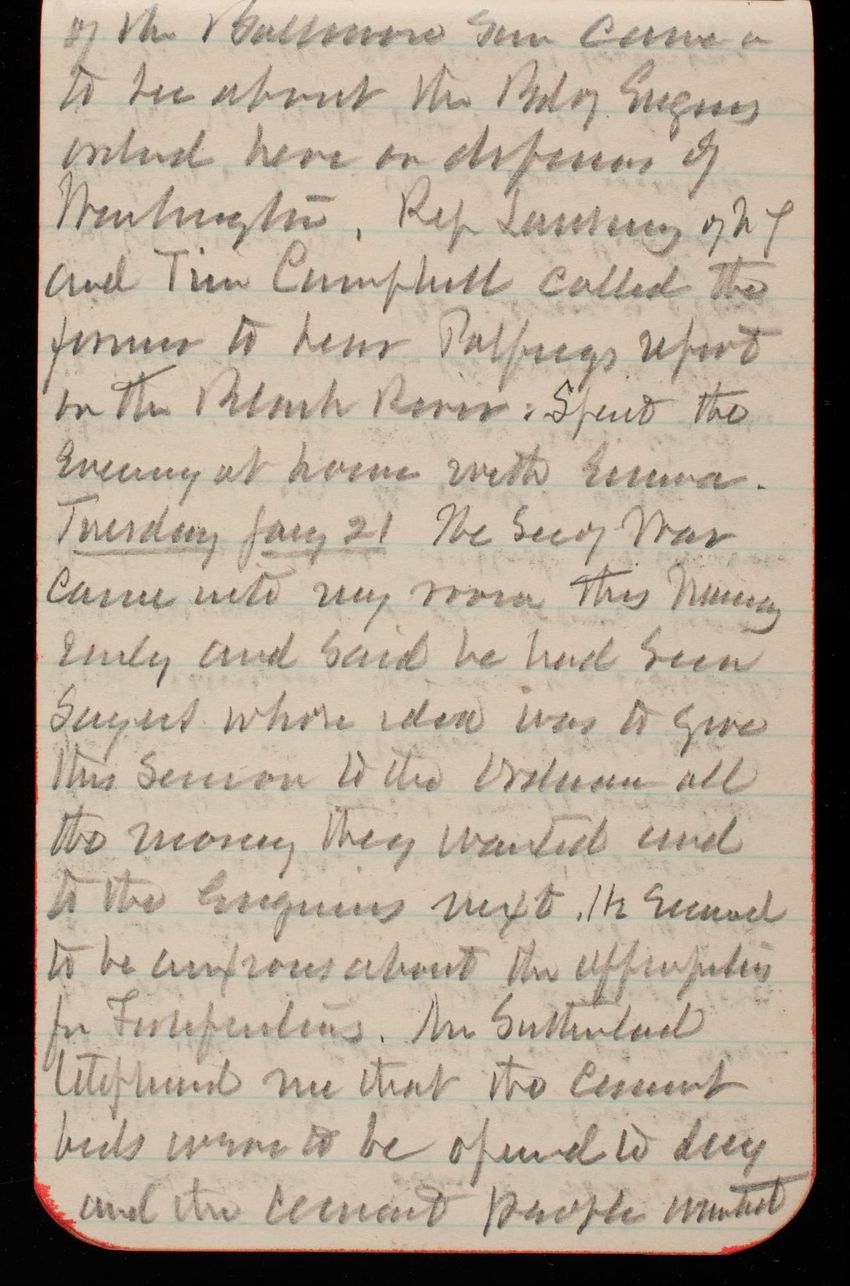 of the Baltimore Sun came
to see about the Bd of Engineers
ordered here on defenses of
Washington. Rep of NY
and Tim Campbell called the
former to hear Palfreys report
on the Black River. Spent the
Evening at home with Emma.
Tuesday Jany 21 The Secy War
came into my room this morning
Early and said he had seen
Sayers whose idea was to give
this Session to the Ordnance all
the money they wanted and
to the Engineers next. He seemed
to be anxious about the appropriations
for Fortifications. Mr Sutherland
telephoned me that the cement
bids were to be opened to day
and the cement people wanted